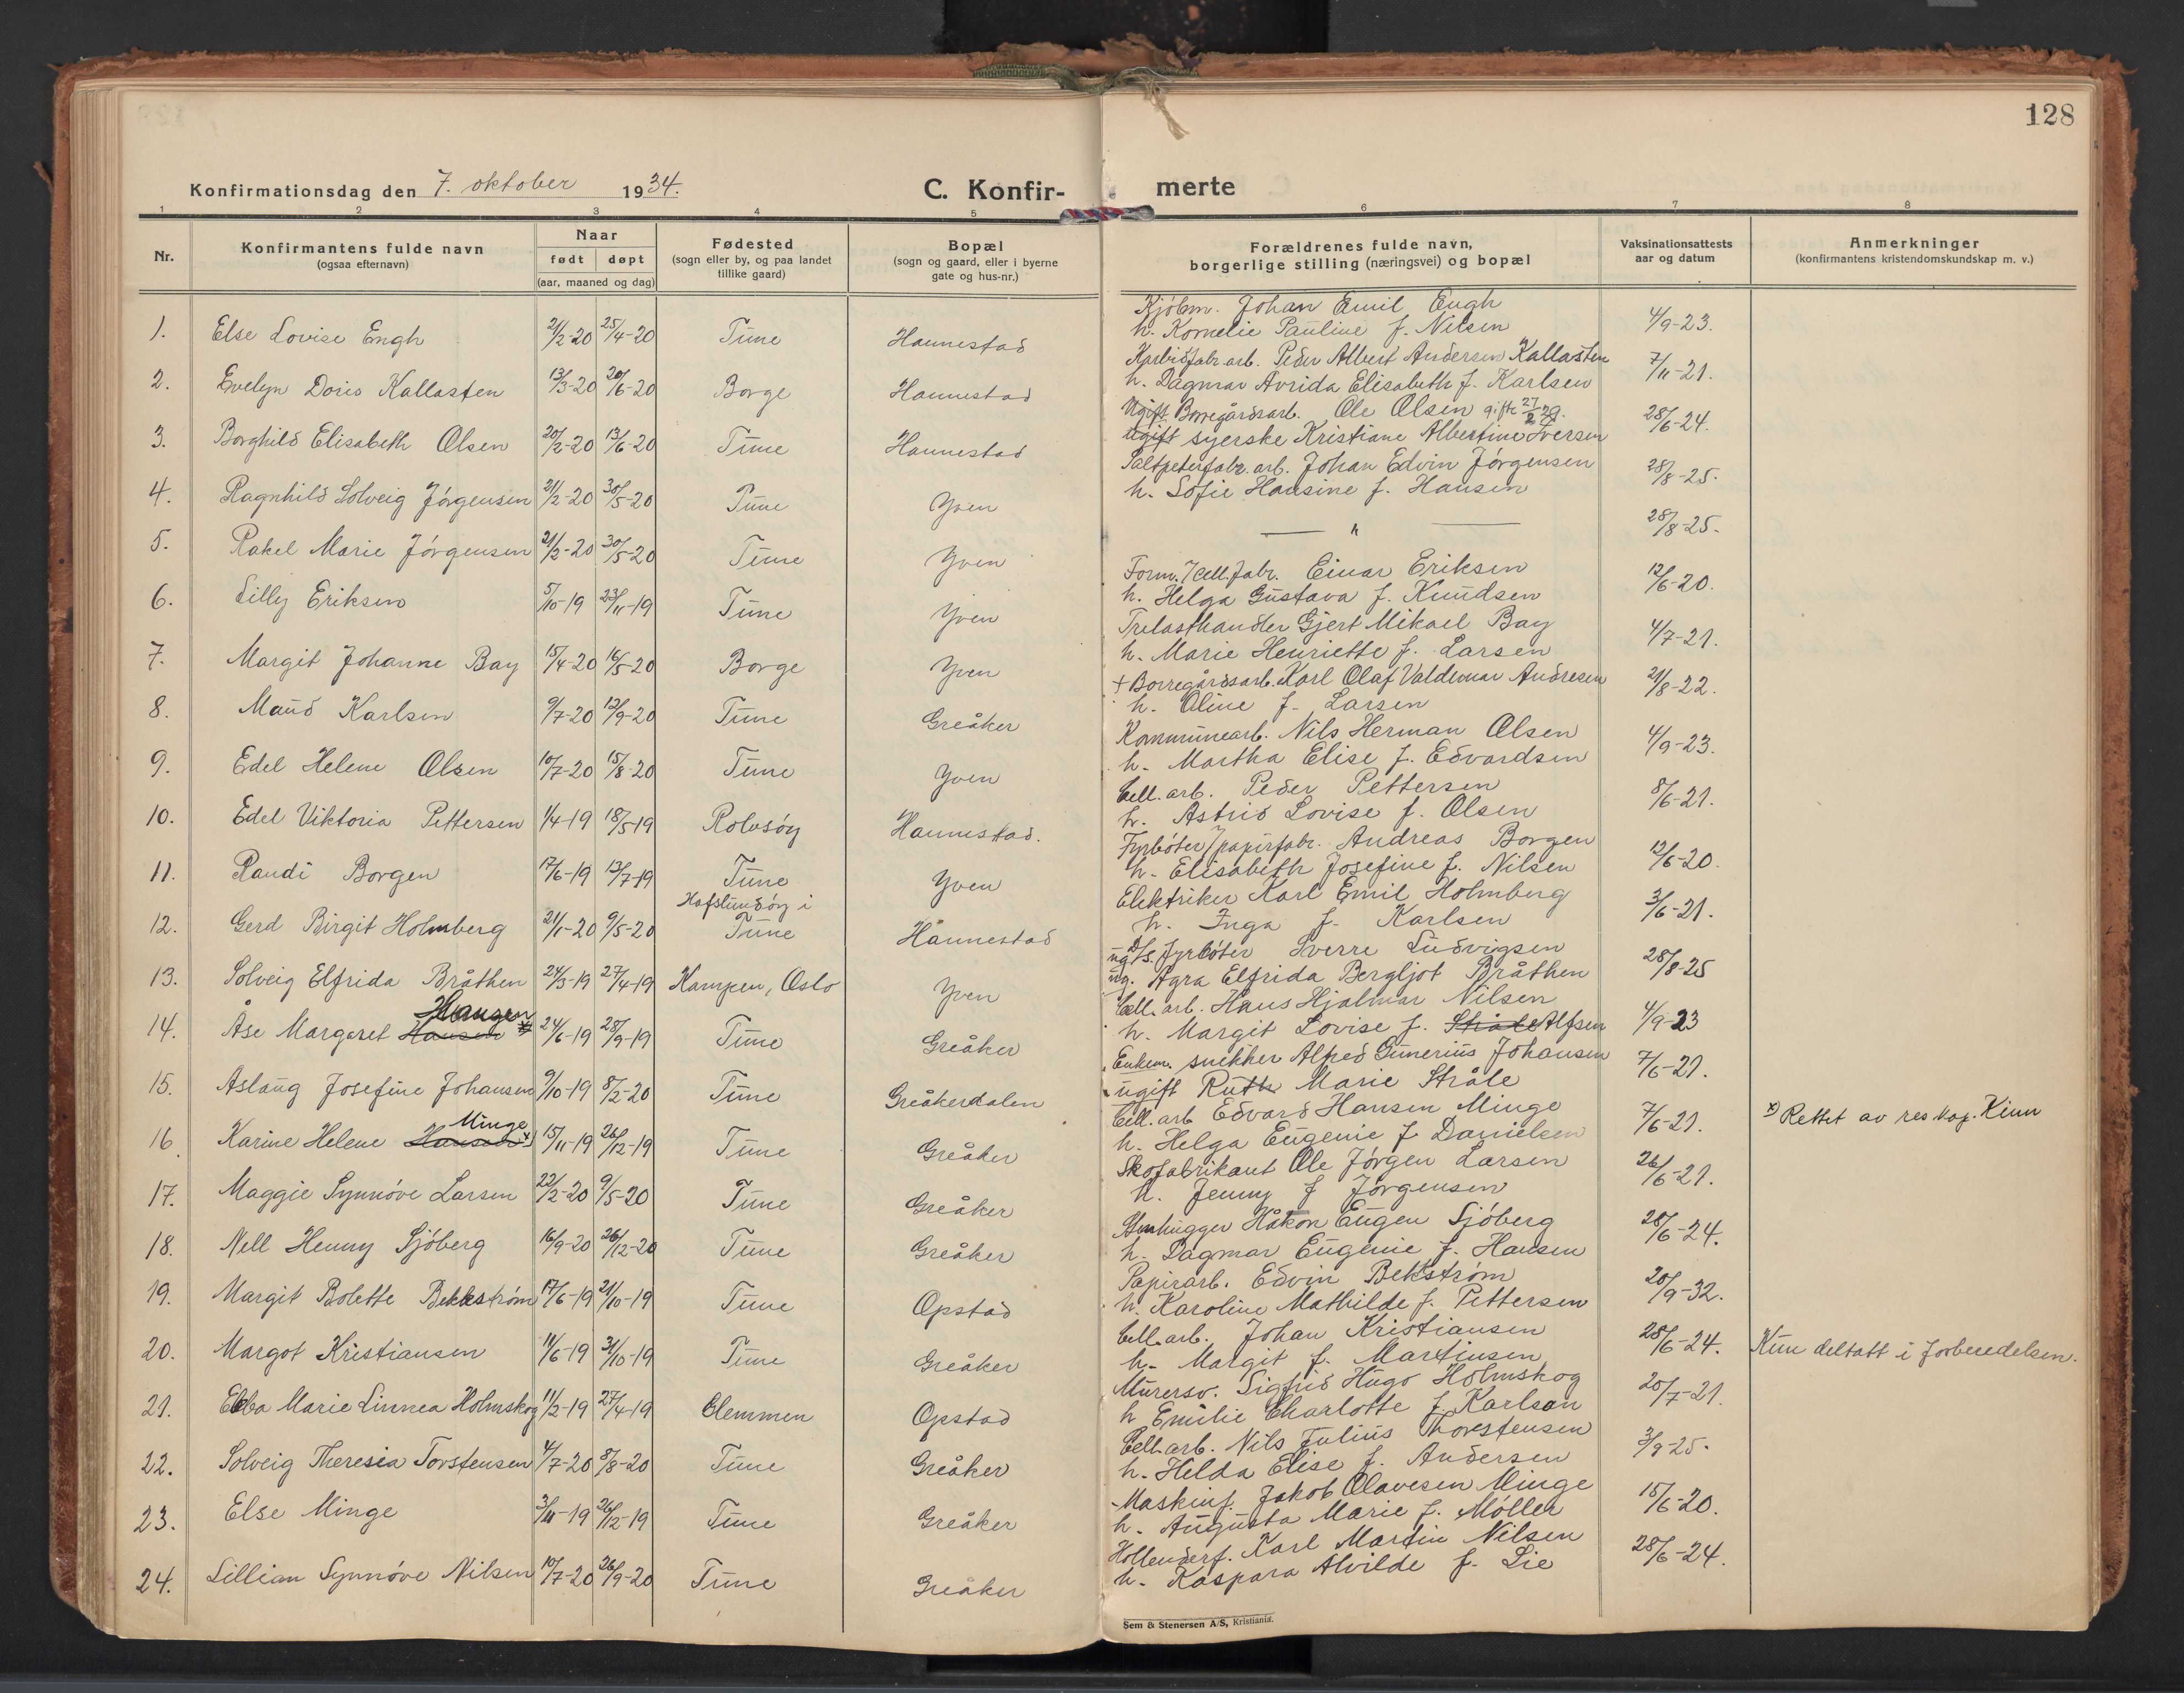 128
Konfirmationsdag den 7. oktober 1934.
C. Konfir- merte
1 2 3 4 5 6 7 8
Nr.
Konfirmantens fulde navn
(ogsaa efternavn)
Naar
født døpt
(aar, maaned og dag)
Fødested
(sogn eller by, og paa landet
tillike gaard)
Bopæl
(sogn og gaard, eller i byerne
gate og hus-nr.)
Forældrenes fulde navn,
borgerlige stilling (næringsvei) og bopæl
Vaksinationsattests
aar og datum
Anmerkninger
(konfirmantens kristendomskundskap m. v.)
Kjøbm. Johan Emil Engh
1. Else Lovise Engh 21/2-20 25/4-20 Tune Hannestad h. Kornelie Pauline f. Nilsen 4/9-23.
Karbidfabr. arb. Peder Albert Andersen Kallasten
2. Evelyn Doris Kallasten 13/3-20 20/6-20 Borge Hannestad h. Dagmar Avrida Elisabeth f. Karlsen 7/11-21.
Ugift Borregårdsarb. Ole Olsen gifte 27/2 29.
3. Borghild Elisabeth Olsen 20/2-20 13/6-20 Tune Hannestad ugift syerske Kristiane Albertine Iversen 28/6-24.
Saltpeterfabr. arb. Johan Edvin Jørgensen
4. Ragnhild Solveig Jørgensen 21/2-20 30/5-20 Tune Yven h. Sofie Hansine f. Hansen 28/8-25.
5. Rakel Marie Jørgensen 21/2-20 30/5-20 Tune Yven — " — 28/8-25.
Form. / cell. fabr. Einar Eriksen
6. Lilly Eriksen 5/10-19 23/11-19 Tune Yven h. Helga Gustava f. Knudsen 12/6-20.
Trelasthandler Gjert Mikael Bay
7. Margit Johanne Bay 15/4-20 16/5-20 Borge Yven h. Marie Henriette f. Larsen 4/7-21.
+ Borregårdsarb. Karl Olaf Valdemar Andresen
8. Maud Karlsen 9/7-20 12/9-20 Tune Greåker h. Oline f. Larsen 21/8-22.
Kommunearb. Nils Herman Olsen
9. Edel Helene Olsen 10/7-20 15/8-20 Tune Yven h. Martha Elise f. Edvardsen 4/9-23.
Cell. arb. Peder Pettersen
10. Edel Viktoria Pettersen 1/4-19 18/5-19 Rolvsøy Hannestad. h. Astrid Lovise f. Olsen 8/6-21.
Fyrbøter / papirfabr. Andreas Borgen
11. Randi Borgen 17/6-19 13/7-19 Tune Yven h. Elisabeth Josefine f. Nilsen 12/6-20.
Elektriker Karl Emil Holmberg
12. Gerd Birgit Holmberg 21/1-20 9/5-20 Hafslundsøy i Tune Hannestad h. Inga f. Karlsen 3/6-21.
ug. D/S. fyrbøter Sverre Ludvigsen
13. Solveig Elfrida Bråthen 24/3-19 27/4-19 Kampen, Oslo Yven ug. Agra Elfrida Bergljot Bråthen 28/8-25
Cell. arb. Hans Hjalmar Nilsen
14. Åse Margaret Hansen Hansen * 24/6-19 28/9-19 Tune Greåker h. Margit Lovise f. Stråle Alfsen 4/9-23
Enkem. snekker Alfred Gunerius Johansen
15. Aslaug Josefine Johansen 9/10-19 8/2-20 Tune Greåkerdalen ugift Ruth Marie Stråle 7/6-21.
Cell. arb Edvard Hansen Minge
16. Karine Helene Hansen Minge x) 15/11-19 26/12-19 Tune Greåker h. Helga Eugenie f Danielsen 7/6-21. x) Rettet av res kap. Kinn
Skofabrikant Ole Jørgen Larsen
17. Maggie Synnøve Larsen 22/2-20 9/5-20 Tune Greåker h. Jenny f Jørgensen 26/6-21.
Stenhugger Håkon Eugen Sjöberg
18. Nell Henny Sjöberg 16/9-20 26/12-20 Tune Greåker h. Dagmar Eugenie f. Hansen 28/6-24.
Papirarb. Edvin Bekkstrøm
19. Margit Bolette Bekkstrøm 17/6-19 21/10-19 Tune Opstad h. Karoline Mathilde f. Pettersen 20/9-32.
Cell. arb. Johan Kristiansen
20. Margot Kristiansen 11/6-19 31/10-19 Tune Greåker h. Margit f. Martinsen 28/6-24. Kun deltatt i forberedelsen.
Murersv. Sigfrid Hugo Holmskog
21. Ebba Marie Linnea Holmskog 11/2-19 27/4-19 Glemmen Opstad h Emilie Charlotte f. Karlson 20/7-21.
Cell. arb. Nils Julius Thorstensen
22. Solveig Theresia Torstensen 4/7-20 8/8-20 Tune Greåker h. Helda Elise f. Andersen 3/9-25.
Maskinf. Jakob Olavesen Minge
23. Else Minge 3/11-19 26/12-19 Tune Greåker h. Augusta Marie f. Møller 15/6-20.
Hollenderf. Karl Martin Nilsen
24. Lillian Synnøve Nilsen 10/7-20 26/9-20 Tune Greåker h. Kaspara Alvilde f. Lie 28/6-24.
Sem & Stenersen A/S, Kristiania.